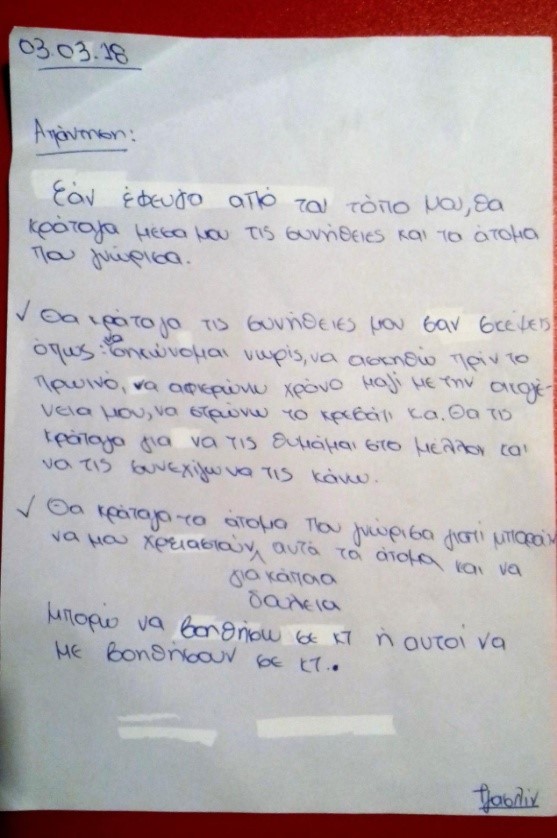 03.03.18
Απάντηση:
Εάν έφευγα από τον τόπο μου, θα
κράταγα μέσα μου τις συνήθειες και τα άτομα
που γνώρισα.
✓ Θα κράταγα τις συνήθειές μου σαν σκέψεις
όπως: να σηκώνομαι νωρίς, να ασκηθώ πριν το
πρωινό, να αφιερώνω χρόνο μαζί με την οικογέ-
νεια μου, να στρώνω το κρεβάτι κα. Θα τις
κράταγα για να τις θυμάμαι στο μέλλον και
να τις συνεχίζω να τις κάνω.
✓ Θα κράταγα τα άτομα που γνώρισα γιατί μπορεί
να μου χρειαστούν αυτά τα άτομα και να
για κάποια
δουλειά
μπορώ να βοηθήσω σε κτ ή αυτοί να
με βοηθήσουν σε κτ..